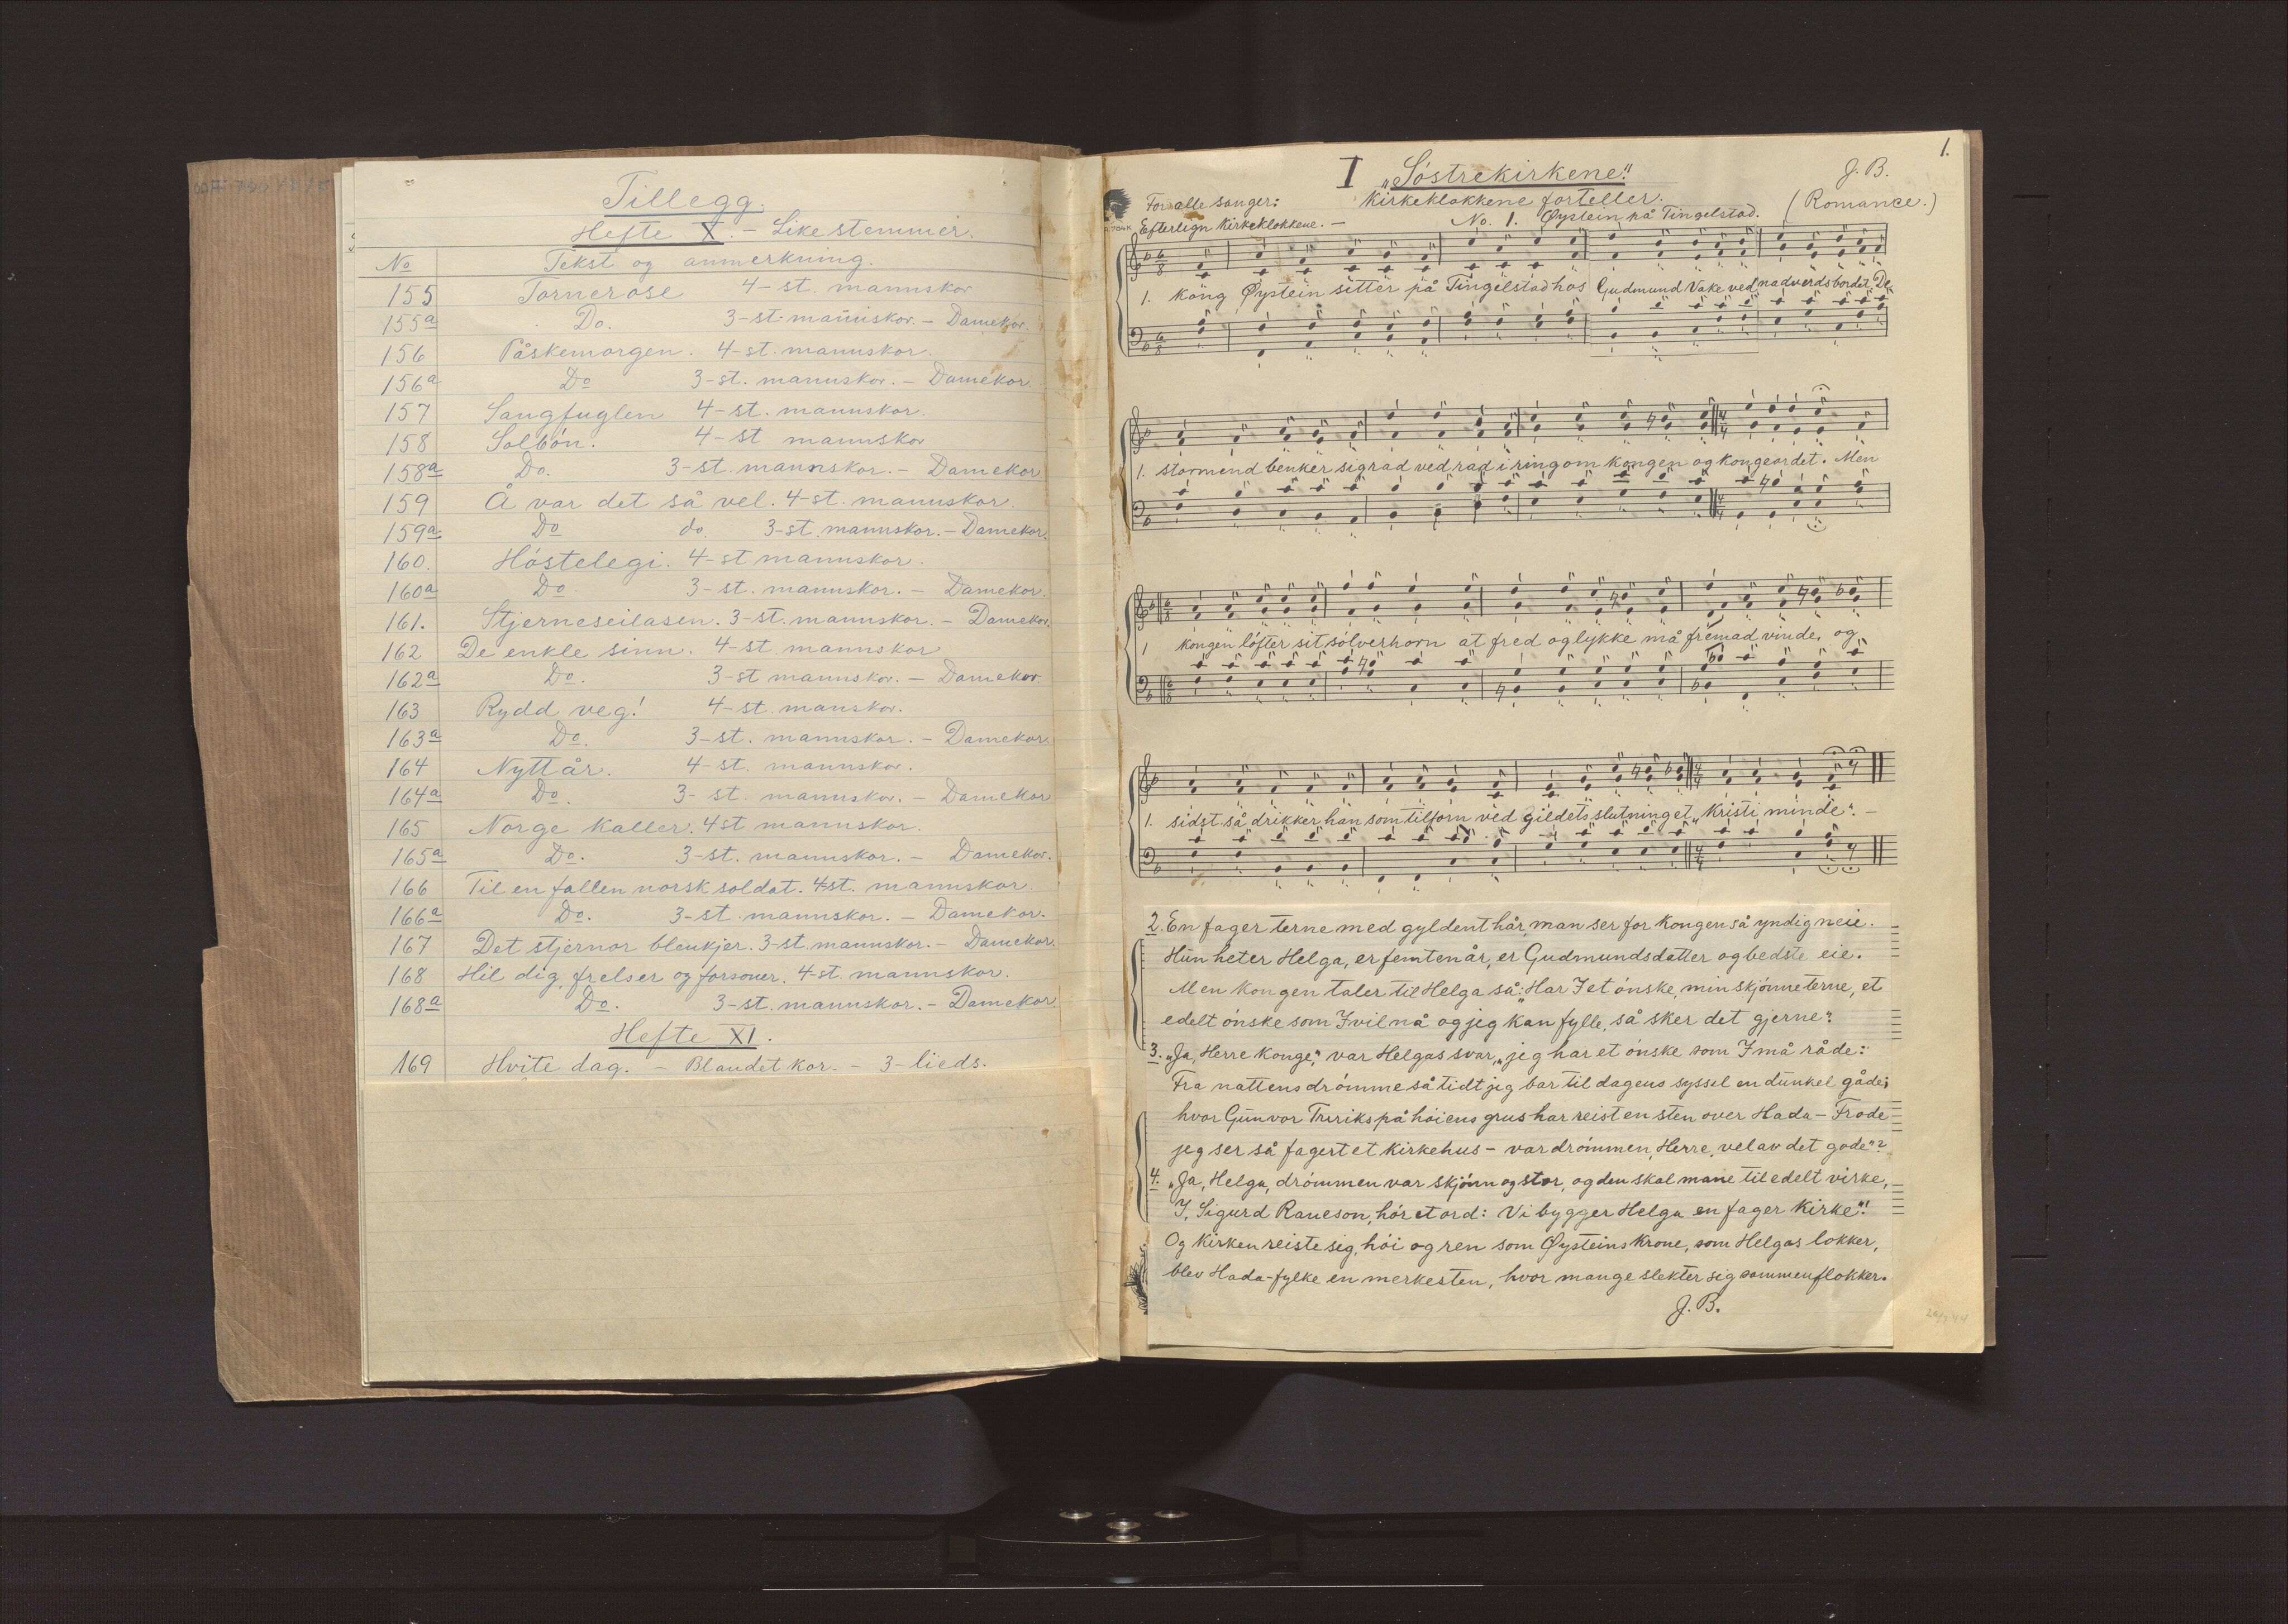 Tillegg.
Hefte X. - Like stemmer.
No Tekst og anmerkning.
155 Tornerose 4-st. mannskor
155a Do. 3-st. mannskor. - Damekor.
156 Påskemorgen. 4-st. mannskor.
156a Do 3-st. mannskor. - Damekor
157 Sangfuglen 4-st. mannskor.
158 Solbön. 4-st mannskor
158a Do. 3-st. mannskor. - Damekor
159 Å var det så vel. 4-st. mannskor.
159a Do do. 3-st. mannskor. - Damekor.
160. Höstelegi. 4-st mannskor.
160a Do 3-st. mannskor. - Damekor.
161. Stjerneseilasen. 3-st. mannskor. - Damekor.
162 De enkle sinn. 4-st. mannskor
162a Do. 3-st mannskor. - Damekor.
163 Rydd veg! 4-st. manskor.
163a Do. 3-st. mannskor. - Damekor.
164 Nyttår. 4-st. mannskor.
164a Do. 3-st. mannskor. - Damekor
165 Norge kaller. 4st mannskor.
165a Do. 3-st. mannskor. - Damekor.
166 Til en fallen norsk soldat. 4-st. mannskor.
166a Do. 3-st. mannskor. - Damekor.
167 Det stjernor blenkjer. 3-st. mannskor. - Damekor.
168 Hil dig, frelser og forsoner. 4-st. mannskor.
168a Do. 3-st. mannskor. - Damekor
Hefte XI.
169 Hvite dag. - Blandet kor. - 3-lieds.
1.
I „Söstrekirkene." J. B.
For alle sanger: Kirkeklokkene forteller. (Romance.)
Efterlign kirkeklokkene. - No. 1. Øystein på Tingelstad.
1. Kong Øystein sitter på Tingelstad hos Gudmund Vake ved nadverdsbordet. De
1. stormend benker sig rad ved rad i ring om kongen og kongeordet. Men
1 kongen löfter sit sölverhorn at fred og lykke må fremad vinde, og
1. sidst så drikker han som tilforn ved gildets slutning et „Kristi minde". -
2. En fager terne med gyldent hår, man ser for kongen så yndig neie.
Hun heter Helga, er femten år, er Gudmundsdatter og bedste eie.
Men kongen taler til Helga så: „Har I et önske, min skjönne terne, et
edelt önske som I vil nå og jeg kan fylle, så sker det gjerne".
3. „Ja, Herre Konge," var Helgas svar, „jeg har et önske som I må råde:
Fra nattens drömme så tidt jeg bar til dagens syssel en dunkel gåde;
hvor Gunvor Tririks på höiens grus har reist en sten over Hada-Frode
jeg ser så fagert et kirkehus - var drömmen, Herre, vel av det gode"?
4. „Ja, Helga, drömmen var skjönn og stor, og den skal mane til edelt virke,
I, Sigurd Raneson, hör et ord: Vi bygger Helga en fager kirke"!
Og kirken reiste sig, höi og ren som Øysteins krone, som Helgas lokker,
blev Hada-fylke en merkesten, hvor mange slekter sig sammenflokker.
J. B.